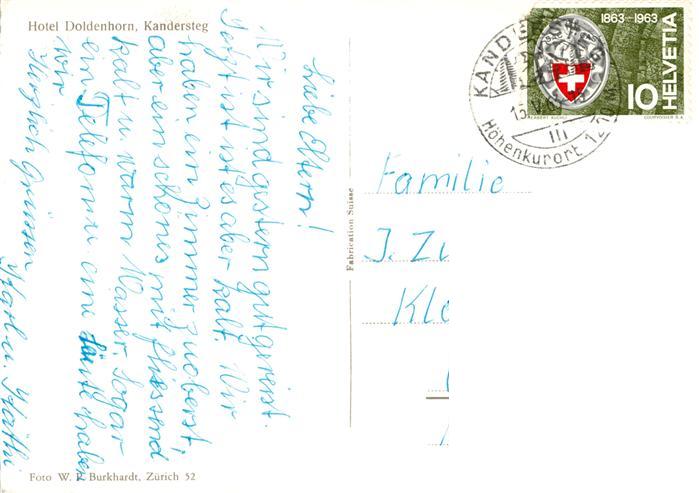 Hotel Doldenhorn, Kandersteg
Liebe Eltern!
Wir sind gestern gut gereist.
Jetzt ist ist es aber kalt. Wir
haben ein Zimmer zuoberst,
aber ein schönes mit fliessend
kalt u. warm Wasser. Sogar
ein Telefon u. eine haben
wir
Herzlich Grüssen
Karl u. Käthi
Foto W. P. Burkhardt, Zürich 52
Fabrication Suisse
Familie
J. Zu
Kle
1863-1963
HELVETIA
10
COURVOISIER S.A.
KANDERSTEG
Höhenkurort 1200 m